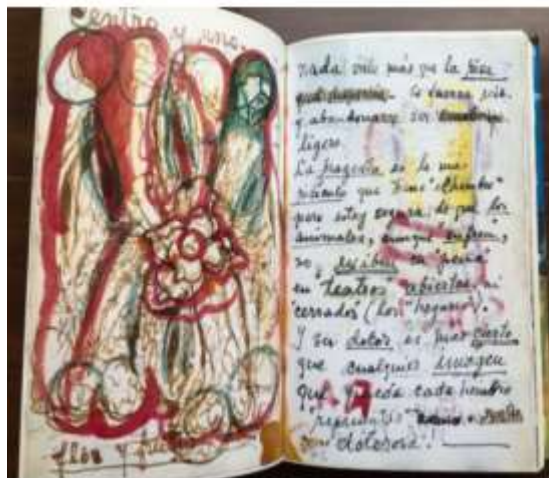 Centro y uno.
flor y fruto
nada vale más que la risa
Es fuerza reír
y abandonarse. Ser
ligero.
La tragedia es lo mas
ridículo que tiene "el hombre"
pero estoy segura, de que los
animales, aunque "sufren",
no exiben su "pena"
en "teatros" abiertos, ni
"cerrados" (los "hogares").
Y su dolor es mas cierto
que cualquier imagen
que pueda cada hombre
"representar"
como dolorosa!